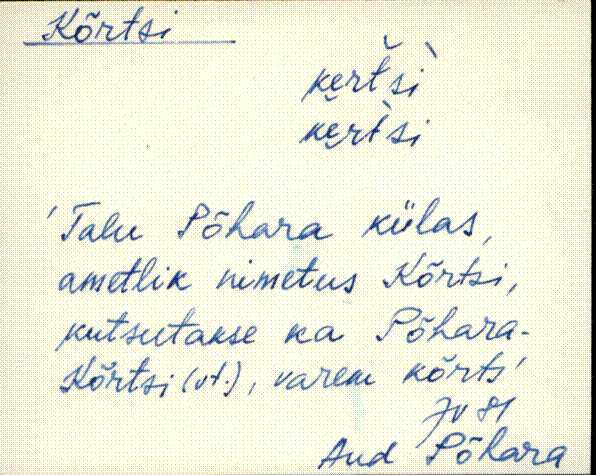 Kõrtsi
ke̮rt̀si`
ke̮rt̀si
'Talu Põhara külas,
ametlik nimetus Kõrtsi,
kutsutakse ka Põhara-
Kõrtsi (vt.), varem kõrts'
JV 81
Aud Põhara